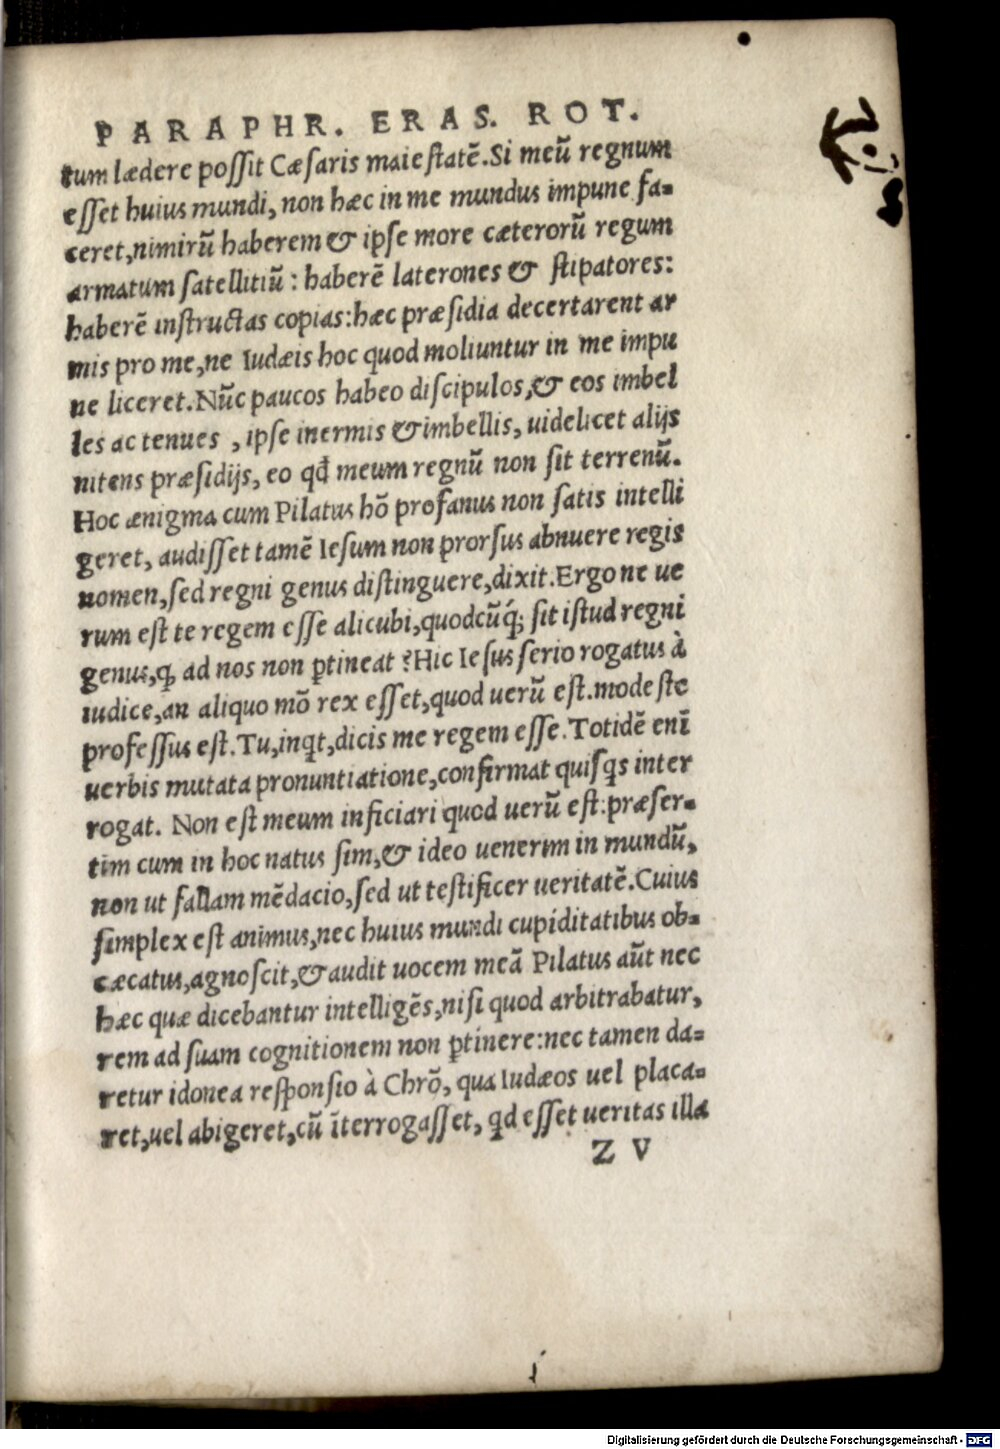 PARAPHR. ERAS. ROT.
tum lædere poſſit Cæſaris maieſtatē. Si meū regnum
eſſet huius mundi, non hæc in me mundus impune fa=
ceret, nimirū haberem & ipſe more cæterorū regum
armatum ſatellitiū: haberē laterones & ſtipatores:
haberē inſtructas copias: hæc præſidia decertarent ar
mis pro me, ne Iudæis hoc quod moliuntur in me impu
ne liceret. Nūc paucos habeo diſcipulos, & eos imbel
les ac tenues, ipſe inermis & imbellis, uidelicet alijs
nitens præſidijs, eo qđ meum regnū non ſit terrenū.
Hoc ænigma cum Pilatus hō profanus non ſatis intelli
geret, audiſſet tamē Ieſum non prorſus abnuere regis
nomen, ſed regni genus diſtinguere, dixit. Ergo ne ue
rum eſt te regem eſſe alicubi, quodcūq́; ſit iſtud regni
genus, ꝙ ad nos non ꝑtineat? Hic Ieſus ſerio rogatus à
iudice, an aliquo mō rex eſſet, quod uerū eſt. modeſte
profeſſus eſt. Tu, inqt, dicis me regem eſſe. Totidē enī
uerbis mutata pronuntiatione, confirmat quiſqs inter
rogat. Non eſt meum inficiari quod uerū eſt: præſer=
tim cum in hoc natus ſim, & ideo uenerim in mundū,
non ut fallam mēdacio, ſed ut teſtificer ueritatē. Cuius
ſimplex eſt animus, nec huius mundi cupiditatibus ob=
cæcatus, agnoſcit, & audit uocem meā Pilatus aūt nec
hæc quæ dicebantur intelligēs, niſi quod arbitrabatur,
rem ad ſuam cognitionem non ꝑtinere: nec tamen da=
retur idonea reſponſio à Chrō, qua Iudæos uel placa=
ret, uel abigeret, cū īterrogaſſet, qd eſſet ueritas illa
Z V
Digitalisierung gefördert durch die Deutsche Forschungsgemeinschaft - DFG